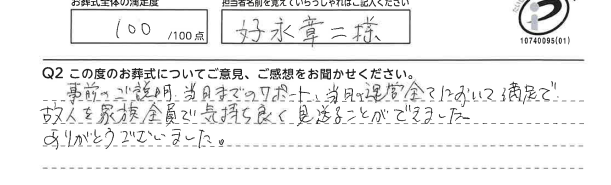 お葬式全体の満足度
担当者名前を覚えていらっしゃればご記入ください
100 /100点
好永章二様
10740095(01)
Q2 この度のお葬式についてご意見、ご感想をお聞かせください。
事前のご説明、当日までのサポート、当日の運営全てにおいて満足で
故人を家族全員で気持ち良く見送ることができました
ありがとうございました。